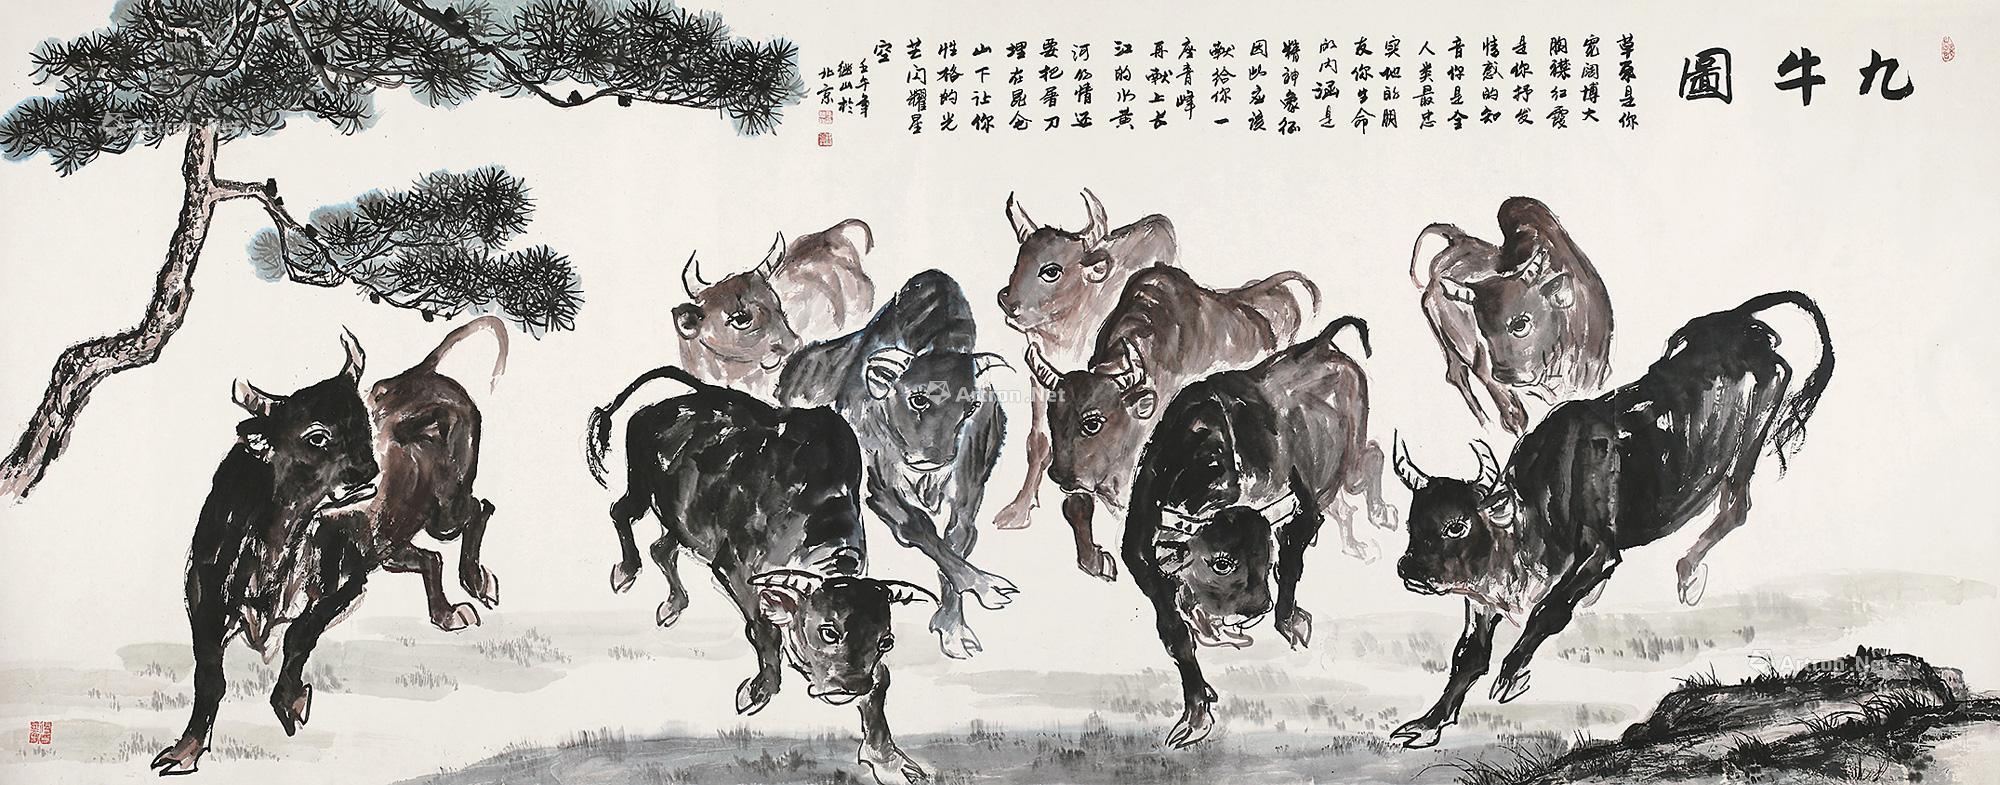 九牛圖
草原是你
宽阔博大
胸襟红霞
是你抒发
情感的知
音你是全
人类最忠
实地的朋
友你生命
的内涵是
精神象征
因此应该
献给你一
座青峰
再献上长
江的水黄
河的情还
要把屠刀
埋在昆仑
山下让你
性格的光
芒闪耀星
空
壬午年
继山於
北京
Artron.Net
Artron.Net